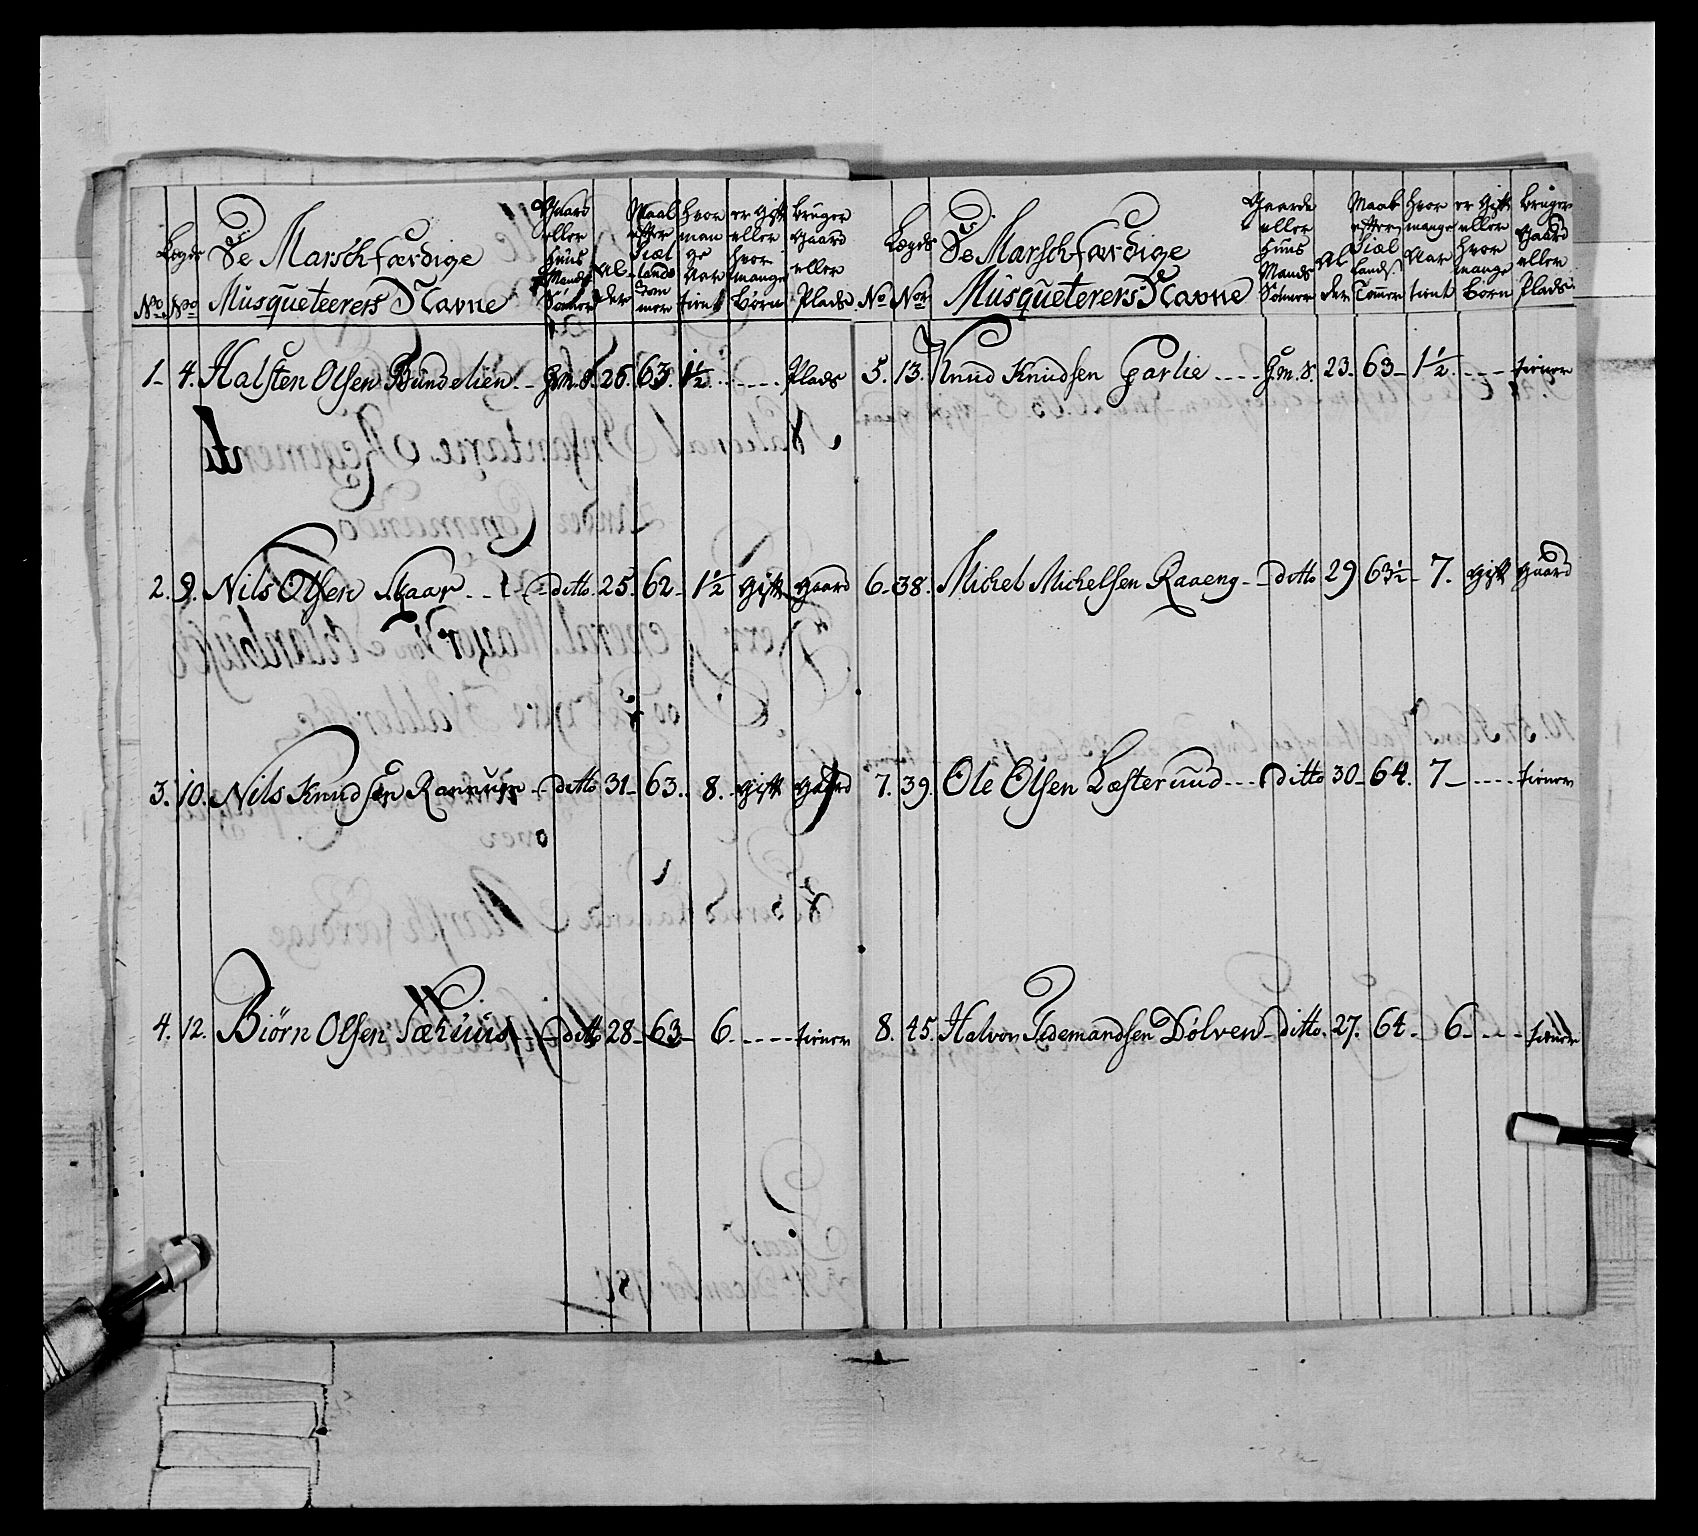 Legds
De Marschfærdige
Musqueteerers Navne
No. No
Gaard
eller
Huus
Mands
Sønner
Al
der
Maal
efter
Siæl
lands
Tom
mer
Hvor
man
ge
Aar
tient
er Gift
eller
hvor
mange
Børn
bruger
Gaard
eller
Plads
1 4. Halsten Olsen Bundelien H.m.S. 26 63 1½ Plads
2. 9. Nils Olsen Skaar ditto 25 62 1½ Gift Gaard
3. 10. Nils Knudsen ditto 31 63. 8. Gift Gaard
4. 12. Biørn Olsen Sæhuus ditto 28 63 6 tiener
Lægds
De Marschfærdige
Musqueterers Navne
No Nor
Gaarde
eller
Huus
Mands
Sønner
Al
der
Maal
efter
Siæl
lands
Tomer
Hvor
mange
Aar
tient
er Gift
eller
hvor
mange
børn
bruger
Gaard
eller
Plads
5. 13. Knud Knudsen Garlie H.m.S. 23 63 1½ tiener
6 38. Michel Michelsen Raaeng ditto 29 63½ 7. Gift Gaard
7. 39. Ole Olsen Læsteruud ditto 30 64. 7 tiener
8. 45. Halvor Tidemandsen Dølven ditto. 27. 64 6 tiener